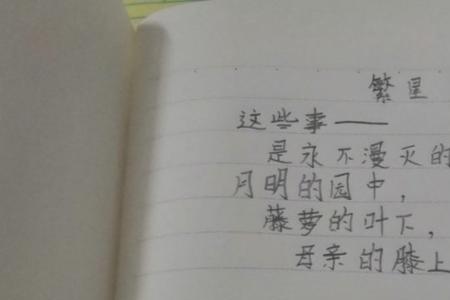 繁星
这些事——
是永不漫灭的
月明的园中，
藤萝的叶下，
母亲的膝上